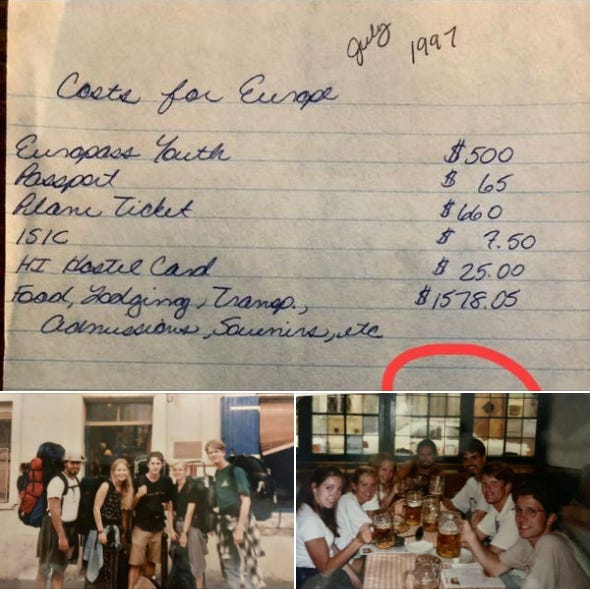 July 1997
Costs for Europe
Europass Youth $500
Passport $ 65
Plane Ticket $660
ISIC $ 7.50
HI Hostel Card $ 25.00
Food, Lodging, Transp., $1578.05
Admissions, Souvenirs, etc